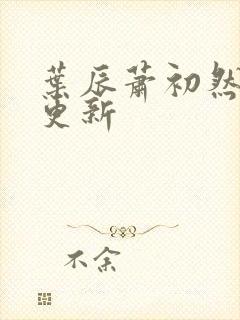 葉辰蕭初然
更新
不余